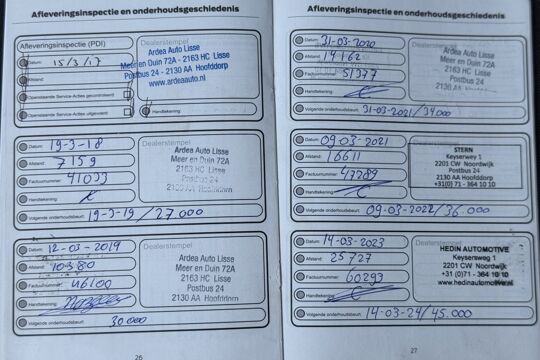 Afleveringsinspectie en onderhoudsgeschiedenis
Afleveringsinspectie (PDI)
Datum: 15/3/17
Afstand:
Openstaande Service-Acties gecontroleerd:
Openstaande Service-Acties uitgevoerd:
Dealerstempel
Ardea Auto Lisse
Meer en Duin 72A - 2163 HC Lisse
Postbus 24 - 2130 AA Hoofddorp
www.ardeaauto.nl
Handtekening:
Datum: 19-3-18
Afstand: 7159
Factuurnummer: 41033
Handtekening:
Volgende onderhoudsbeurt: 19-3-19/27.000
Dealerstempel
Ardea Auto Lisse
Meer en Duin 72A
2163 HC Lisse
Postbus 24
2130 AA Hoofddorp
Datum: 12-03-2019
Afstand: 10380
Factuurnummer: 46100
Handtekening:
Volgende onderhoudsbeurt: 30000
Dealerstempel
Ardea Auto Lisse
Meer en Duin 72A
2163 HC Lisse
Postbus 24
2130 AA Hoofddorp
26
Afleveringsinspectie en onderhoudsgeschiedenis
Datum: 31-03-2020
Afstand: 14162
Factuurnummer: 51377
Handtekening:
Volgende onderhoudsbeurt: 31-03-2021/34000
Dealerstempel
Ardea Auto Lisse
Meer en Duin 72A
2163 HC Lisse
Postbus 24
Datum: 09-03-2021
Afstand: 16611
Factuurnummer: 47289
Handtekening:
Volgende onderhoudsbeurt: 09-03-2022/36.000
Dealerstempel
STERN
Keyserweg 1
2201 CW Noordwijk
Postbus 24
2130 AA Hoofddorp
+31(0)71 - 364 10 10
Datum: 14-03-2023
Afstand: 25127
Factuurnummer: 60293
Handtekening:
Volgende onderhoudsbeurt: 14-03-24/45.000
HEDIN AUTOMOTIVE
Keysersweg 1
2201 CW Noordwijk
+31 (0)71 - 364 10 10
www.hedinautomotive.nl
27